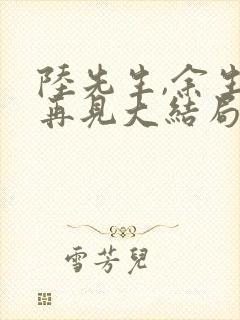 陸先生,余生
再見大結局
雪芳兒